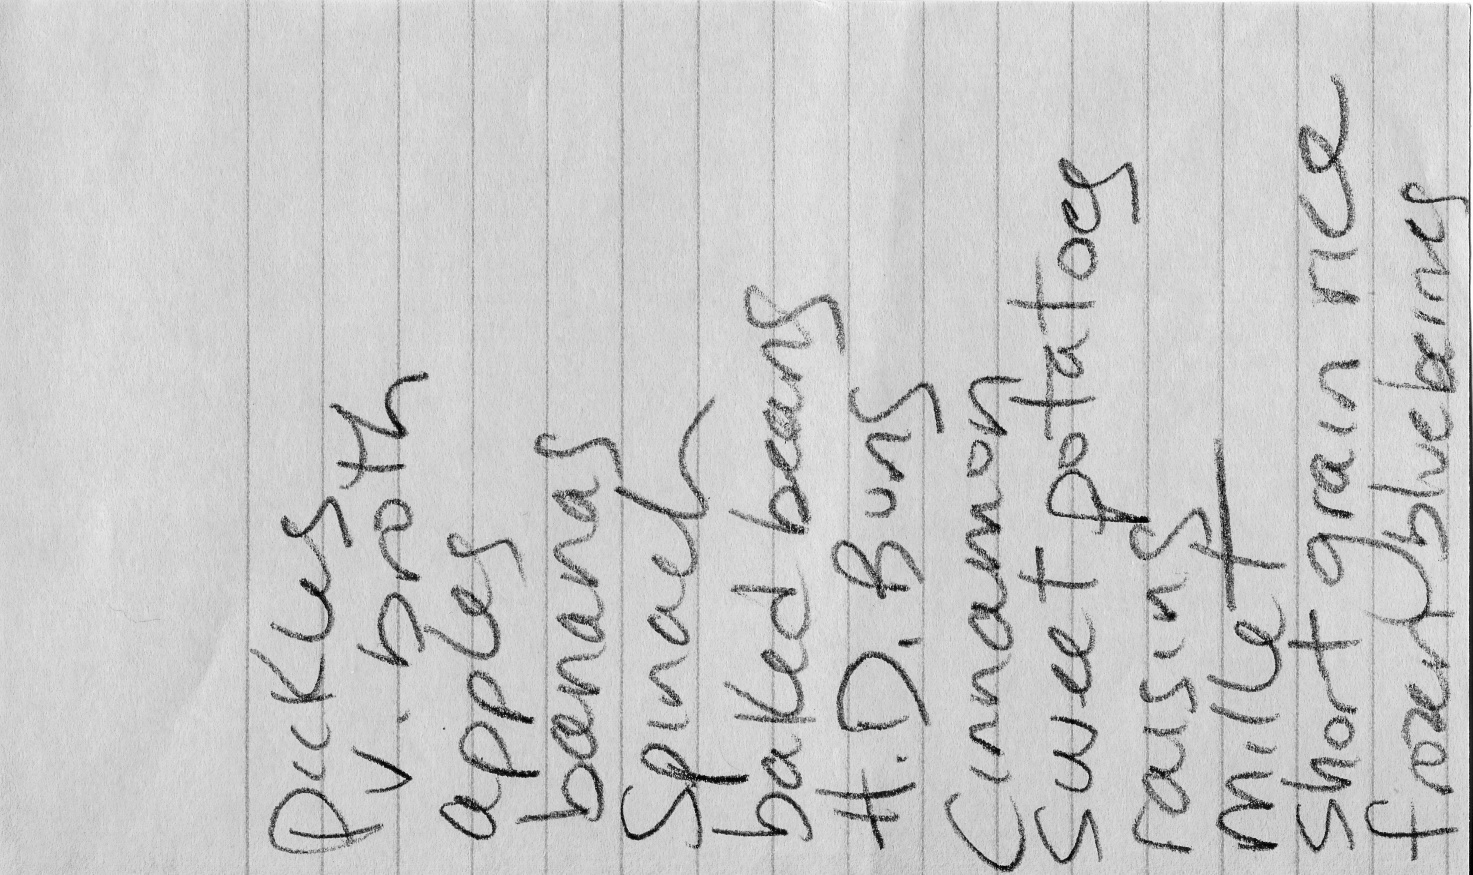 pickles
v. broth
apples
bananas
Spinach
baked beans
H.D. Buns
Cinnamon
sweet potatoes
raisins
millet
short grain rice
frozen blueberries